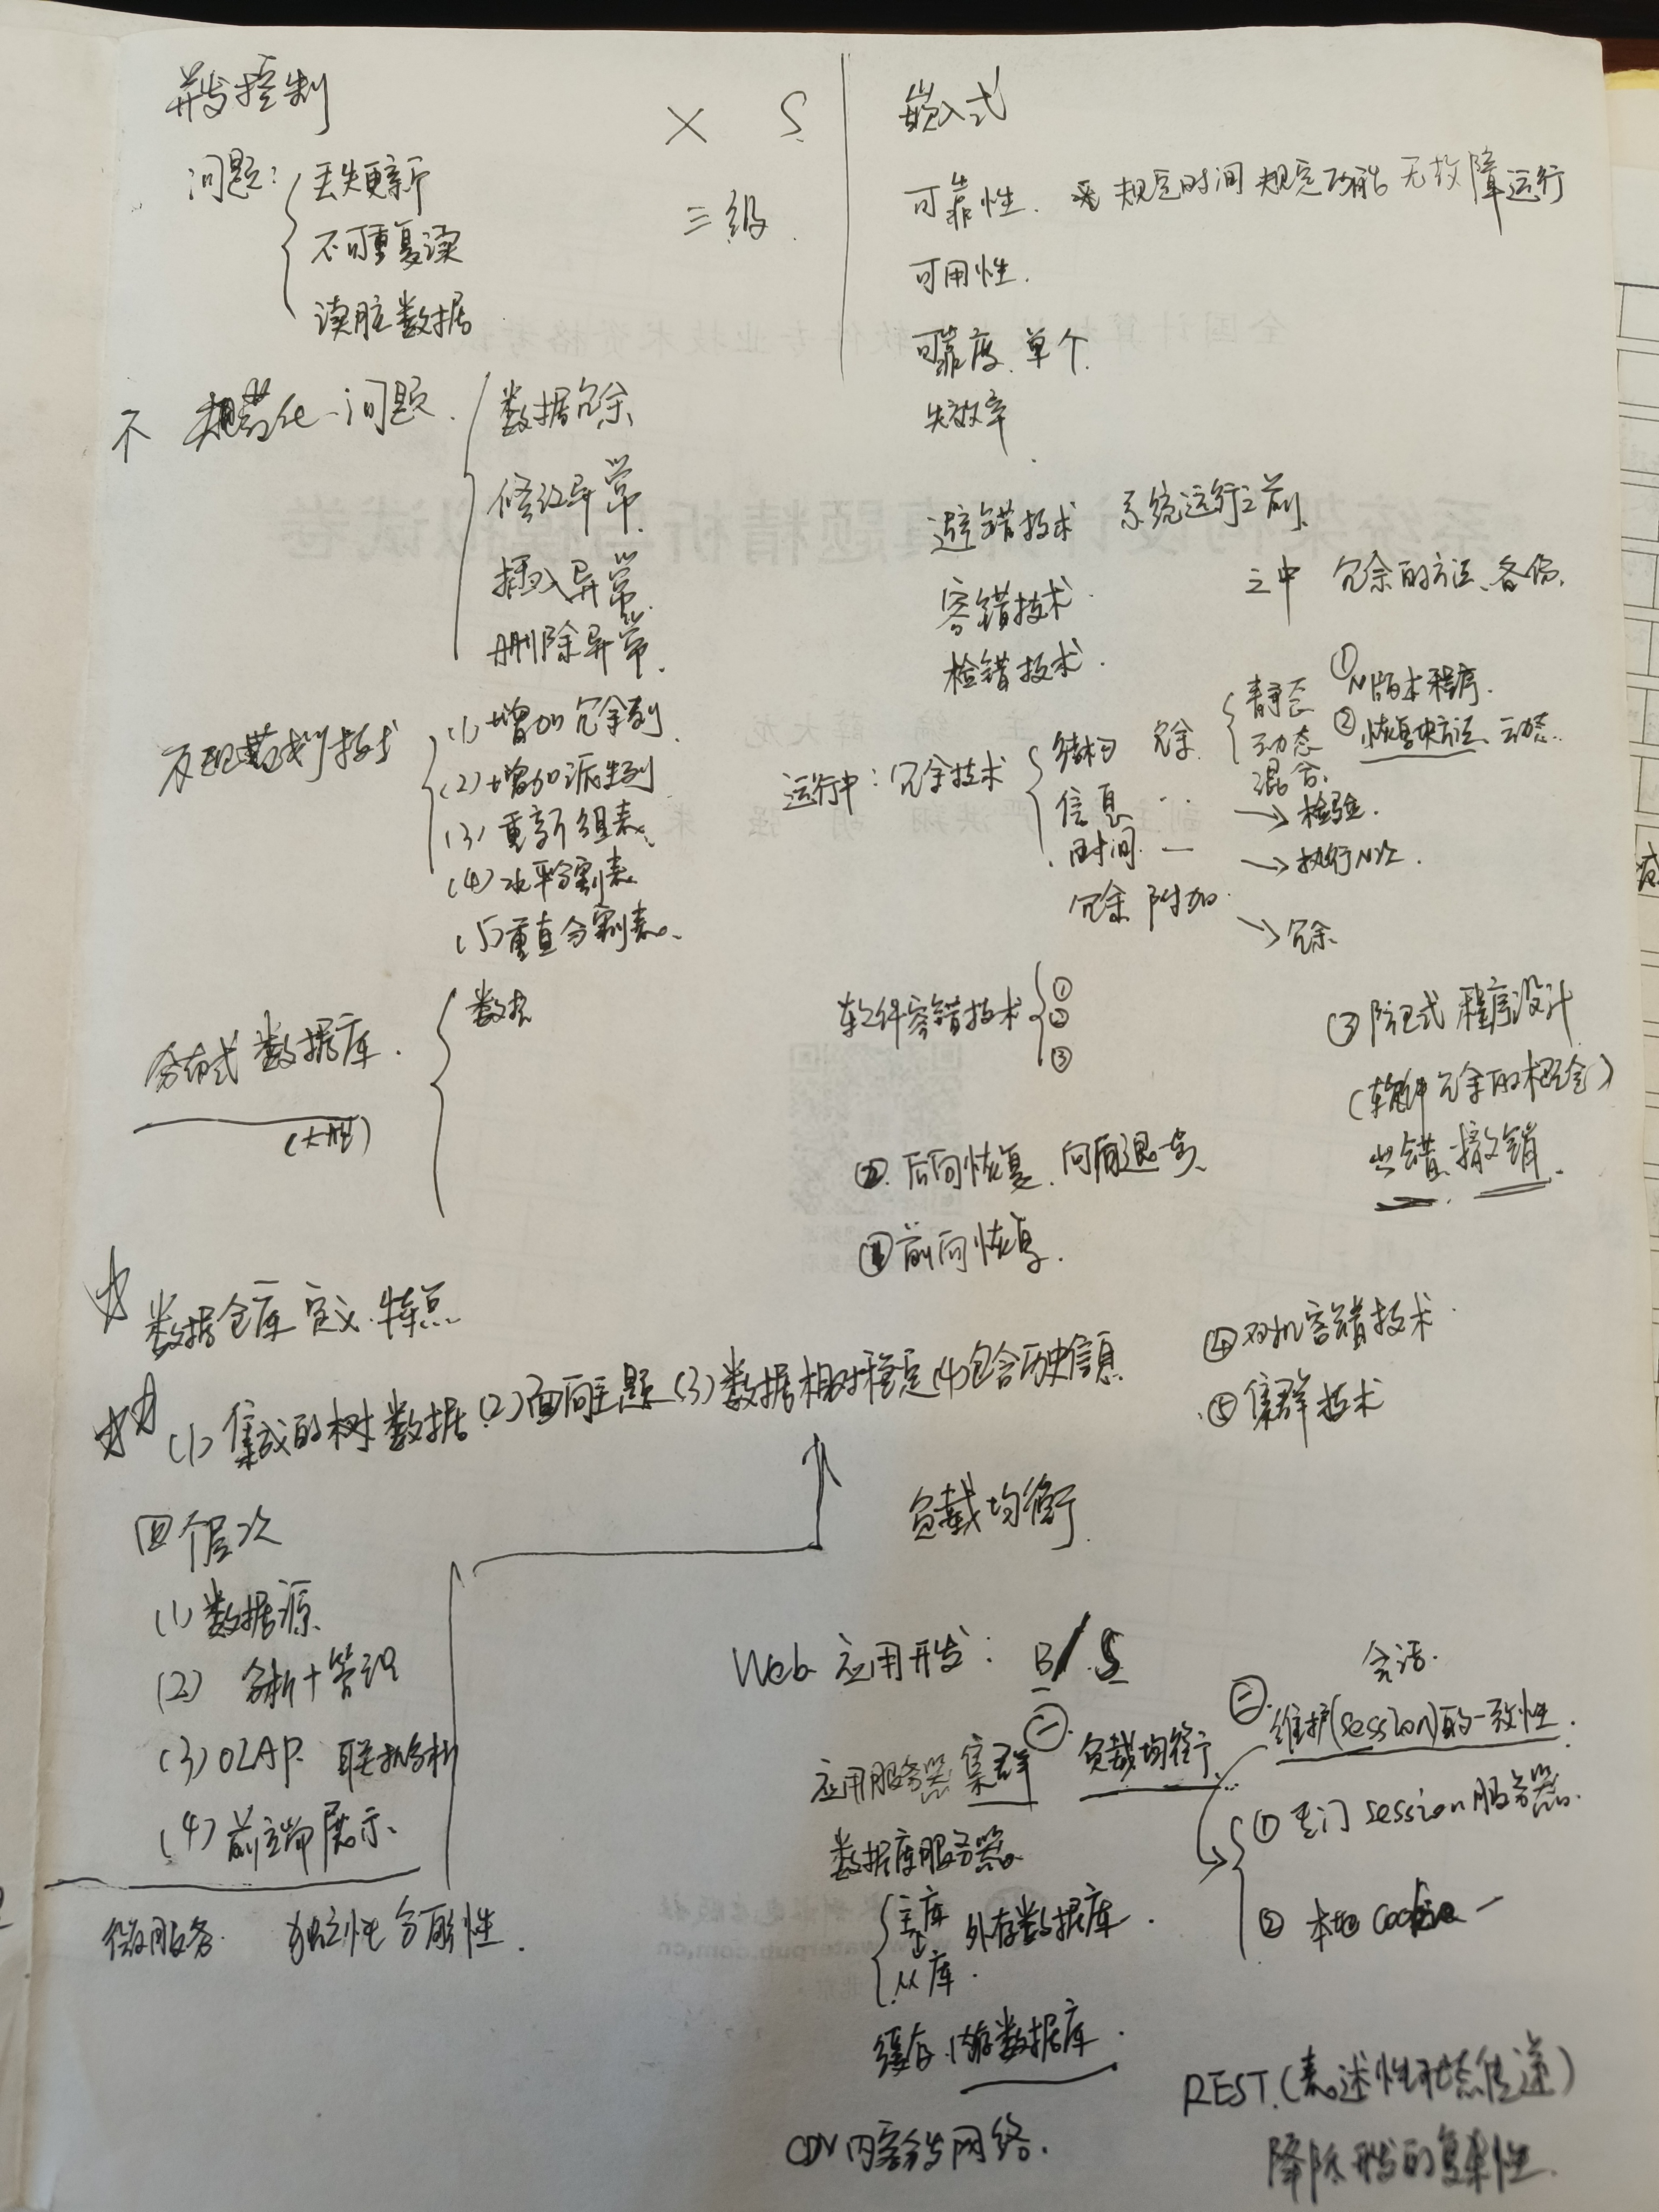 并发控制
问题：丢失更新
不可重复读
读脏数据
X S
三级
不规范化问题
数据冗余
修改异常
插入异常
删除异常
反规范化技术
(1)增加冗余列
(2)增加派生列
(3)重新组表
(4)水平分割表
(5)垂直分割表
分布式数据库
(大型)
数据仓库定义、特点
(1)集成的 数据 (2)面向主题 (3)数据相对稳定 (4)包含历史信息
四个层次
(1)数据源
(2) 分析+管理
(3)OLAP 联机分析
(4)前端展示
微服务 独立性
嵌入式
可靠性. 规定时间 规定功能 无故障运行
可用性.
可靠度. 单个
失效率
避错技术 系统运行之前
之中 冗余的方法、备份.
容错技术
检错技术
运行中：冗余技术
结构 冗余
静态
动态
混合
信息 → 检验.
时间 → 执行N次.
冗余附加 → 冗余
①N版本程序.
②恢复块方法 动态
软件容错技术 ① ② ③
③防卫式程序设计
(软件冗余的概念)
出错、撤销
②后向恢复、向后退
①前向恢复.
④双机容错技术
⑤集群技术
负载均衡
Web应用开发：B/S
应用服务器集群 ㊀负载均衡
会话.
㊁维护(session)的一致性.
①专门session服务器.
②本地Cookie
数据库服务器
主库
从库.
外存数据库.
缓存.内存数据库.
CDN内容分发网络.
REST.(表述性状态传递)
降低开发的复杂性.